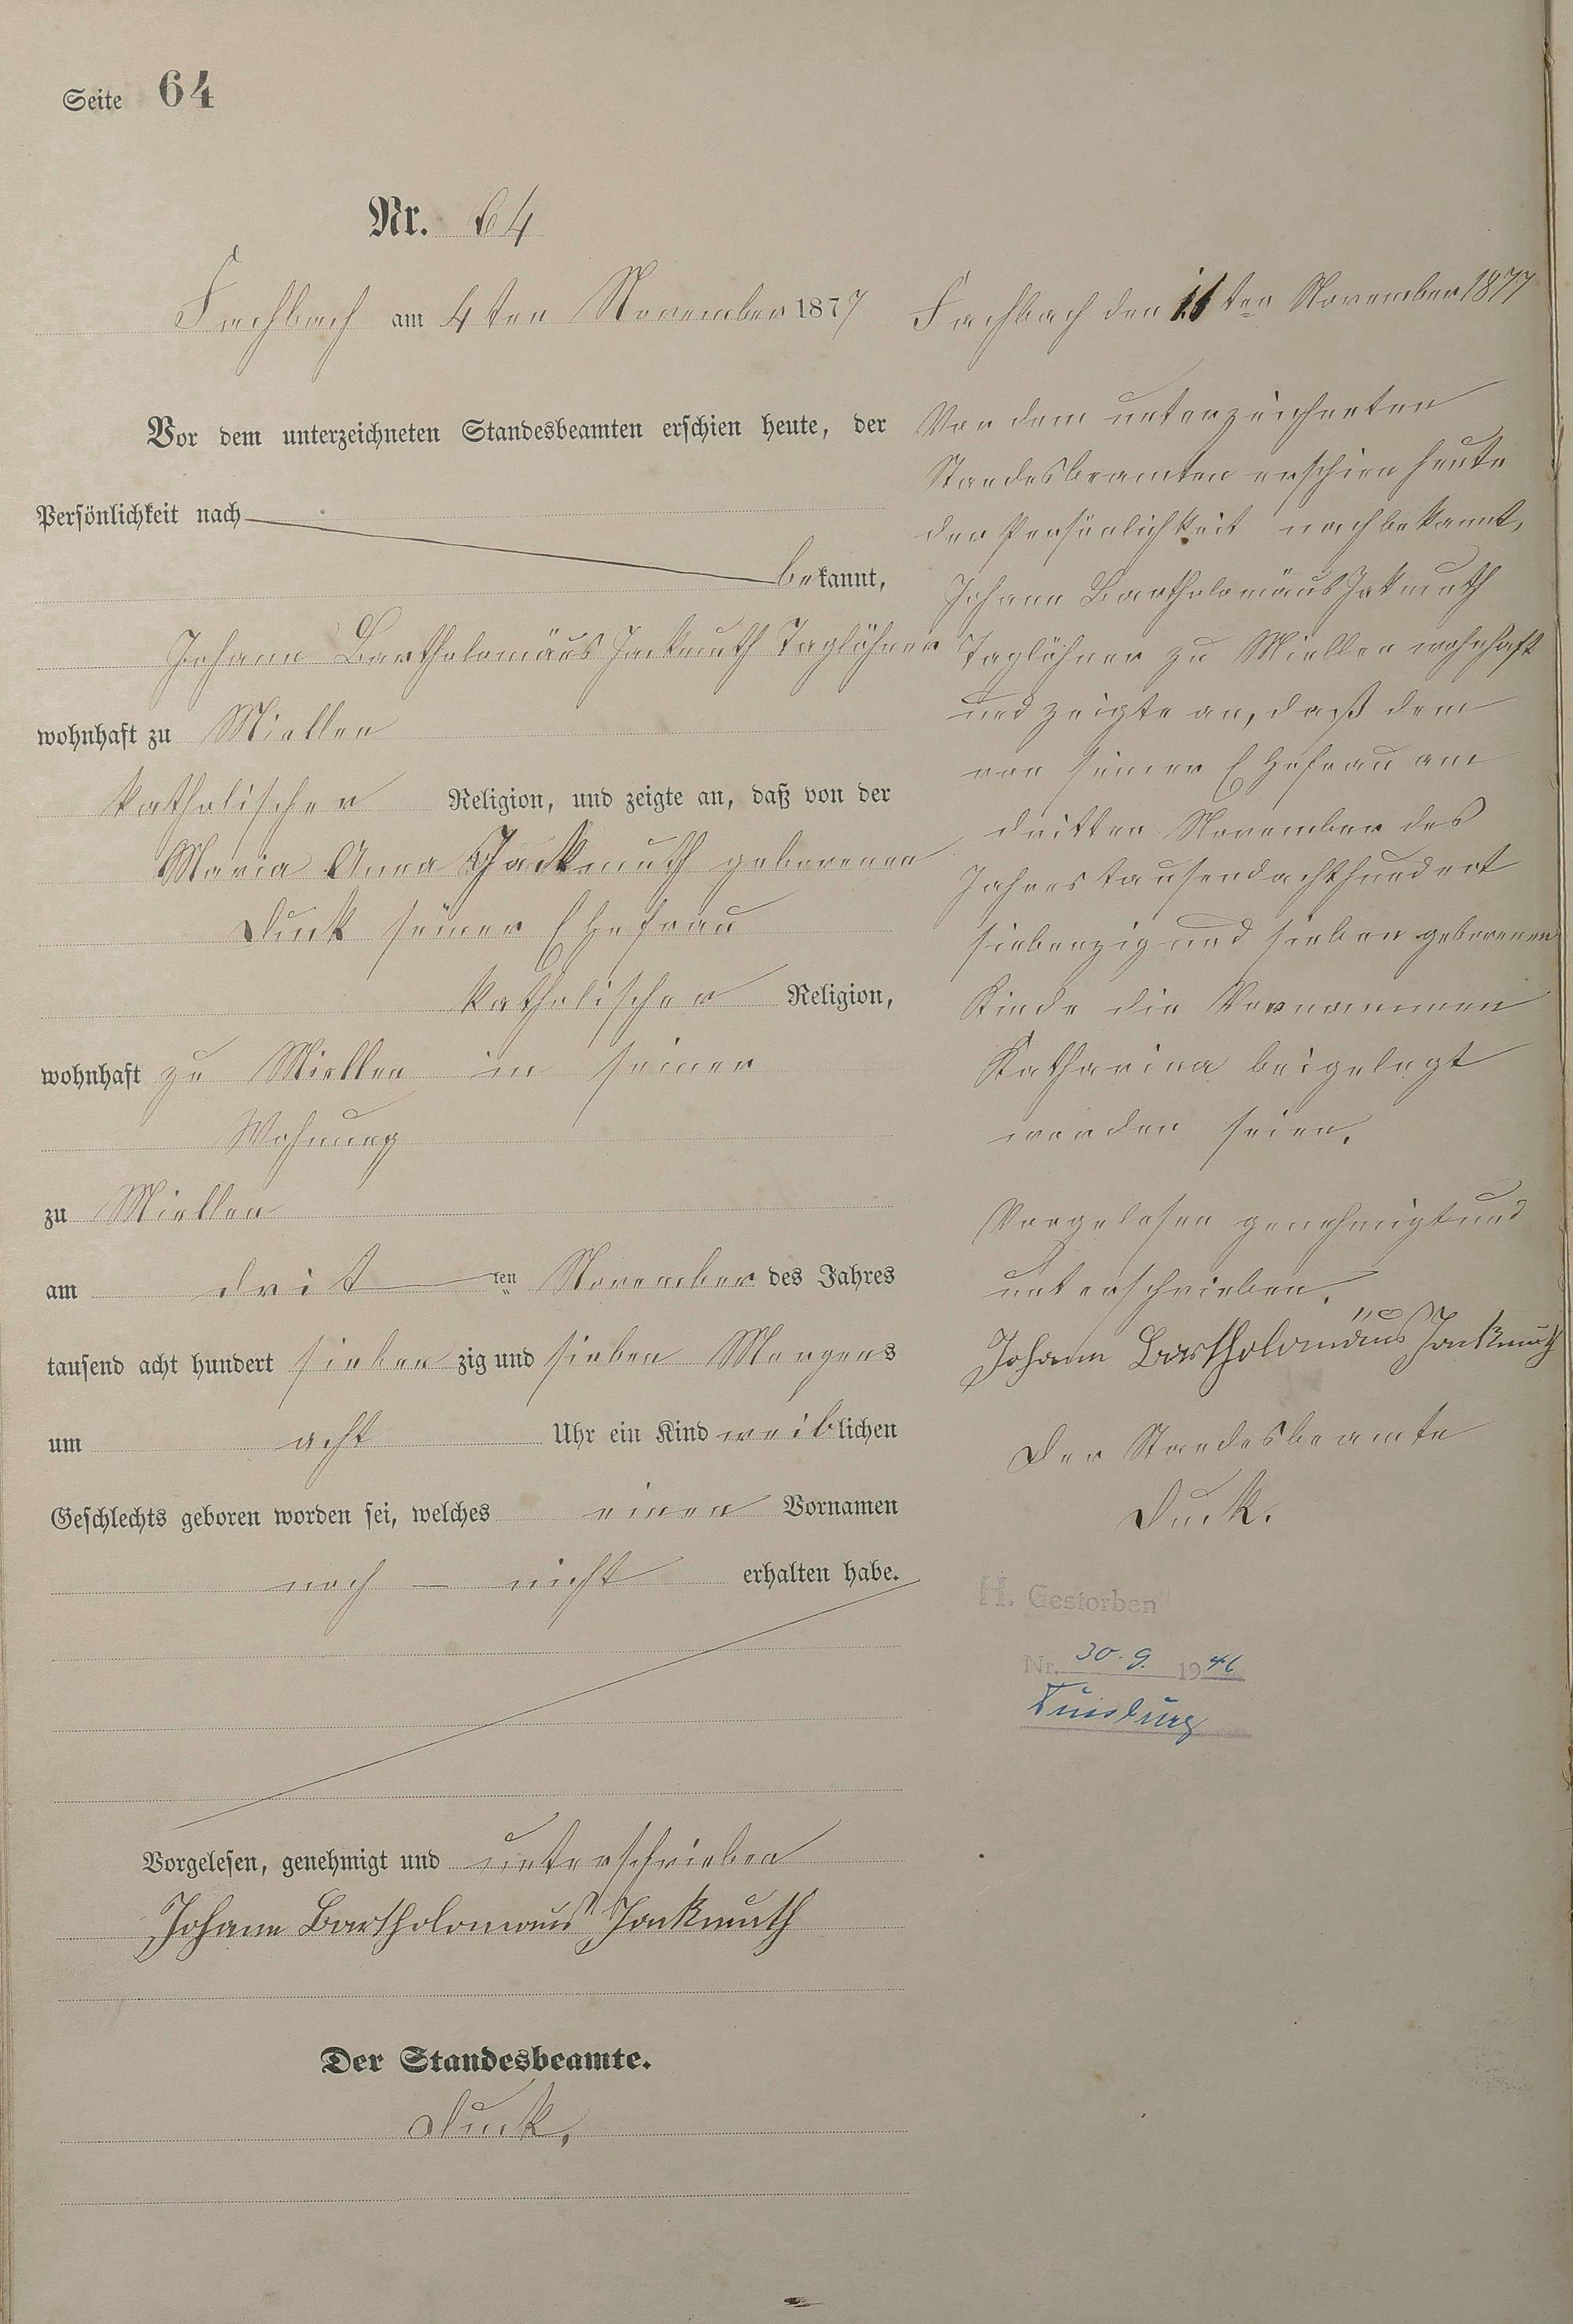 Seite 64
Nr. 64
Fachbach am 4ten November 1877
Vor dem unterzeichneten Standesbeamten erschien heute, der
Persönlichkeit nach
bekannt,
Johann Bartholomäus Jackmuth Taglöhner
wohnhaft zu Miellen
katholischer Religion, und zeigte an, daß von der
Maria Anna Jackmuth geborenen
Duck seiner Ehefrau
katholischer Religion,
wohnhaft zu Miellen in seiner
Wohnung
zu Miellen
am dritten November des Jahres
tausend acht hundert siebenzig und sieben Morgens
um acht Uhr ein Kind weiblichen
Geschlechts geboren worden sei, welches einen Vornamen
noch – nicht erhalten habe.
Vorgelesen, genehmigt und unterschrieben
Johann Bartholomäus Jackmuth
Der Standesbeamte.
Duck.
Fachbach den 11ten November 1877
Vor dem unterzeichneten
Standesbeamten erschien heute
der Persönlichkeit nach bekannt,
Johann Bartholomäus Jakmuth
Taglöhner zu Miellen wohnhaft
und zeigte an, daß dem
von seiner Ehefrau am
dritten November des
Jahres tausendachthundert
siebenzig und sieben geborenen
Kinde die Vornammen
Katharina beigelegt
worden seien.
Vorgelesen genehmigt und
unterschrieben.
Johann Bartholomäus Jackmuth
Der Standesbeamte
Duck.
H. Gestorben
Nr. 30.9. 1946
Duisburg